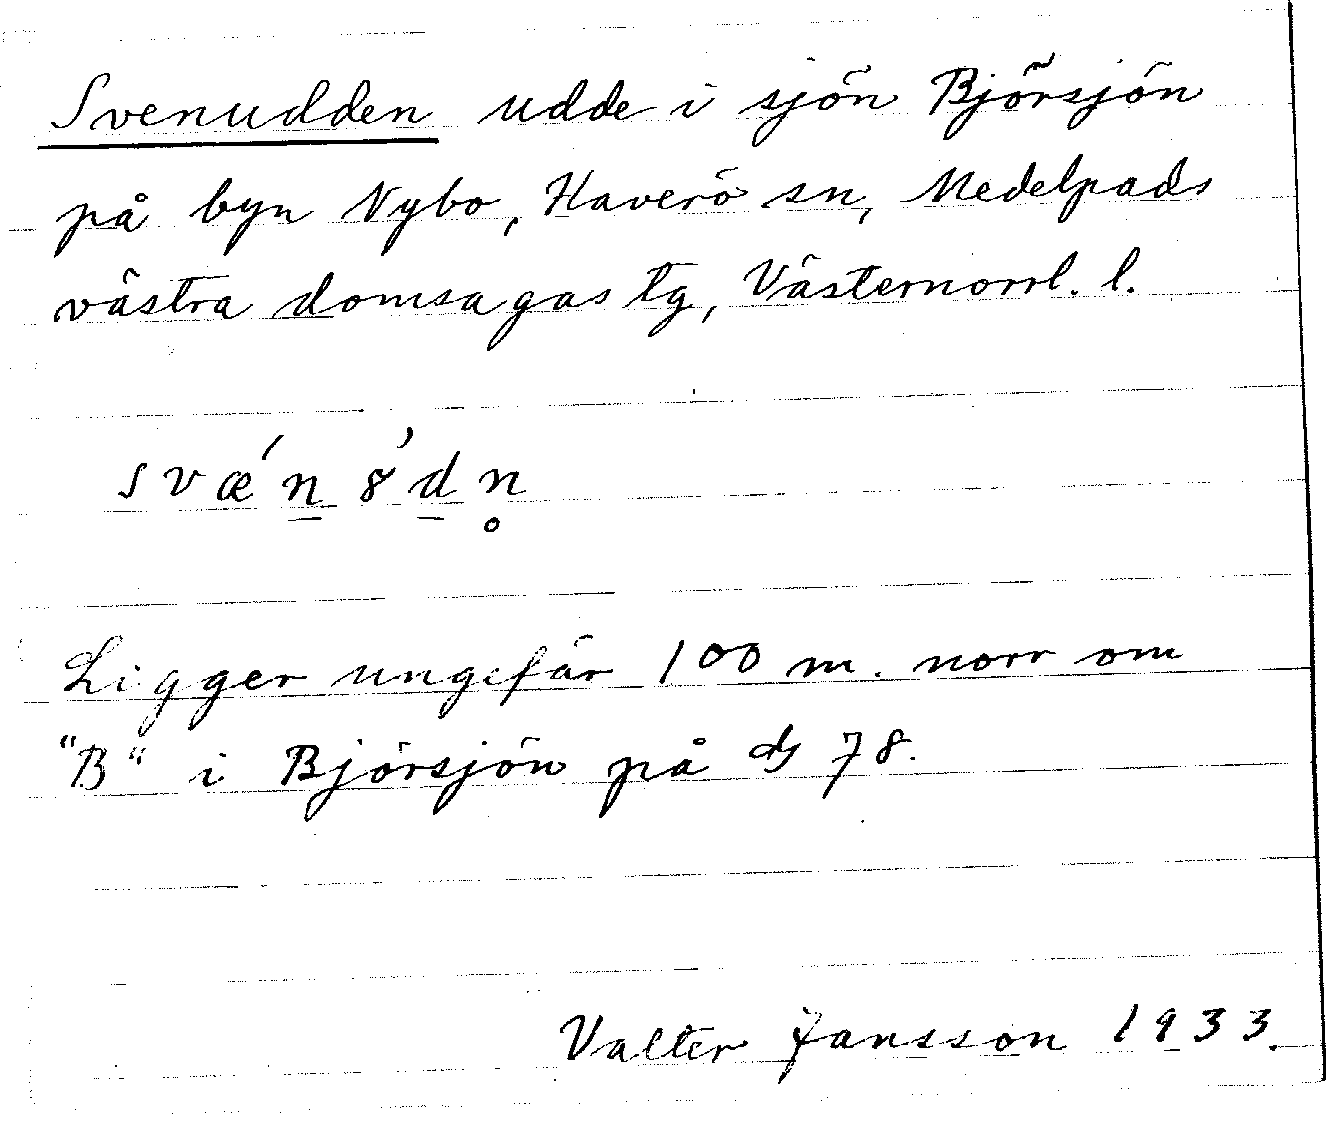 Svenudden udde i sjön Björsjön
på byn Nybo, Haverö sn, Medelpads
västra domsagas tg, Västernorrl. l.
svǽn̲8̓d̲n̥
Ligger ungefär 100 m. norr om
"B" i Björsjön på ds 78.
Valter Jansson 1933.